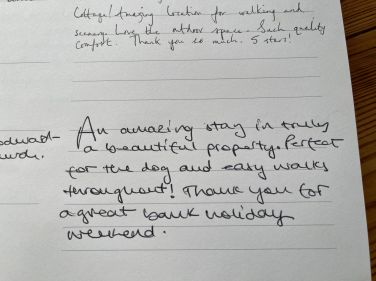 Cottage! Amazing location for walking and
scenery. Love the outdoor space. Such quality
comfort. Thank you so much. 5 star!
An amazing stay in truly
a beautiful property. Perfect
for the dog and easy walks
throughout! Thank you for
a great bank holiday
weekend.